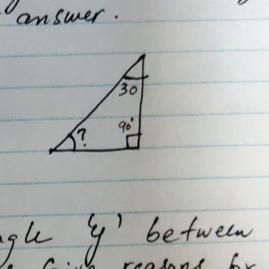 answer.
30
90°
?
'y' between